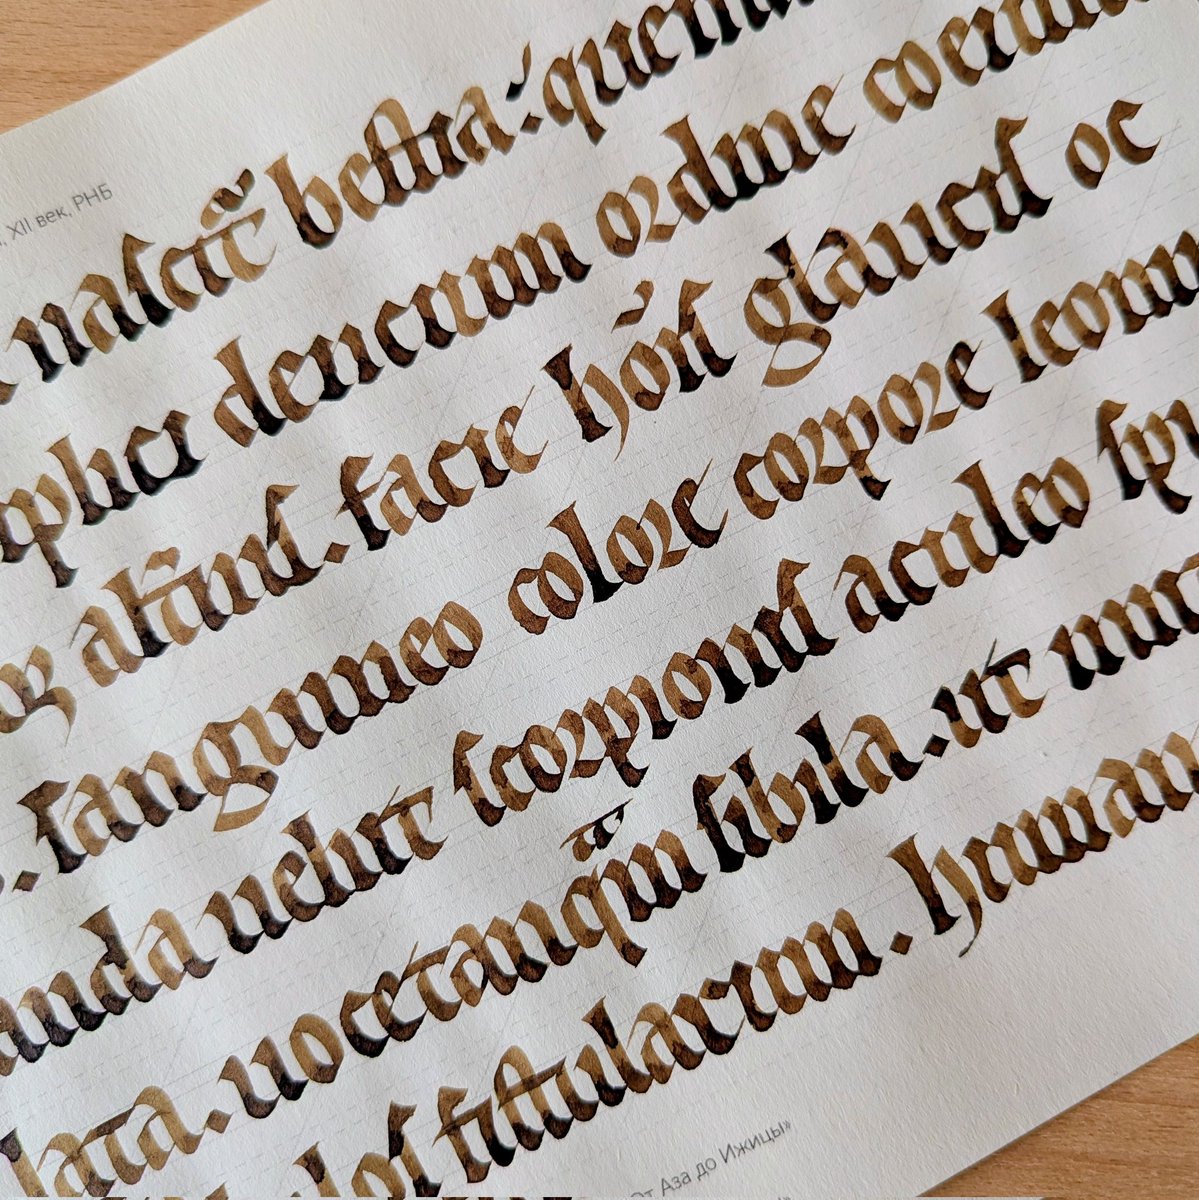 XII век, РНБ
naſcit᷑ beſtia: quem
plici dencium ordine coeun
alt̾niſ. facie hõiſ glauciſ oc
. ſanguineo colore corpore leonin
auda uelut ſcorpioniſ aculeo ſpi
lata. uoce tanqᵃm ſibila. ut imit
loſ fiſtularum. human
От Аза до Ижицы»